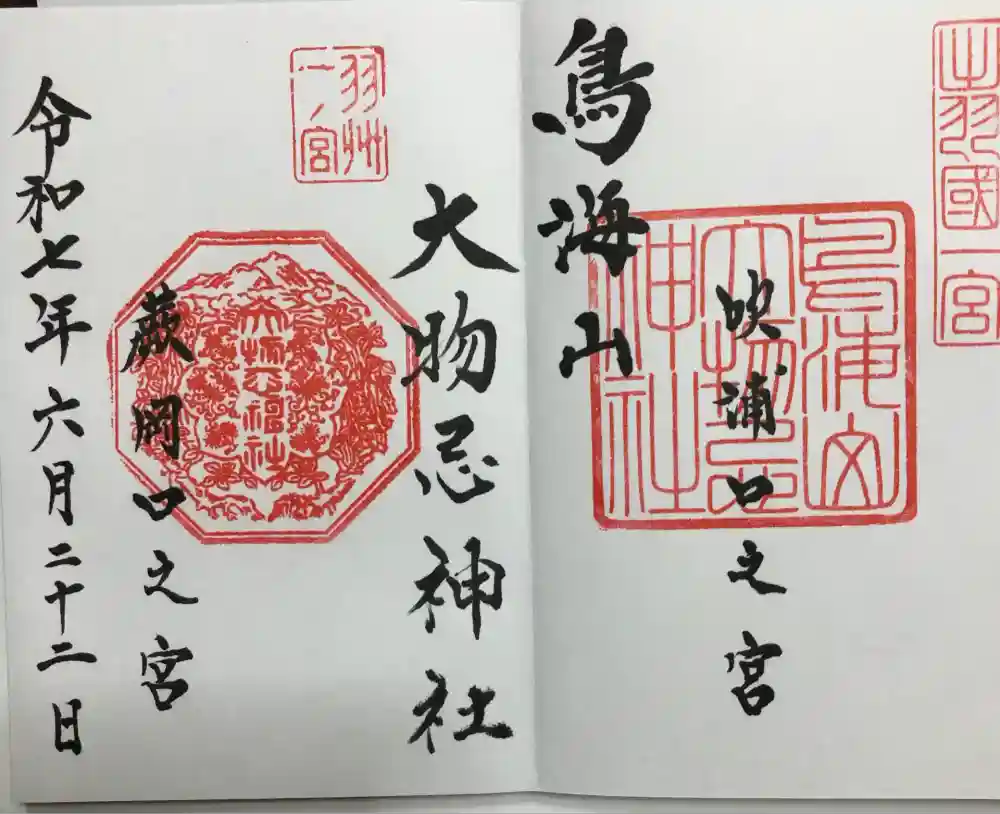 出羽國一宮
鳥海山大物忌神社
吹浦口之宮
鳥海山
大物忌神社
羽州一ノ宮
大物忌神社
蕨岡口之宮
令和七年六月二十二日